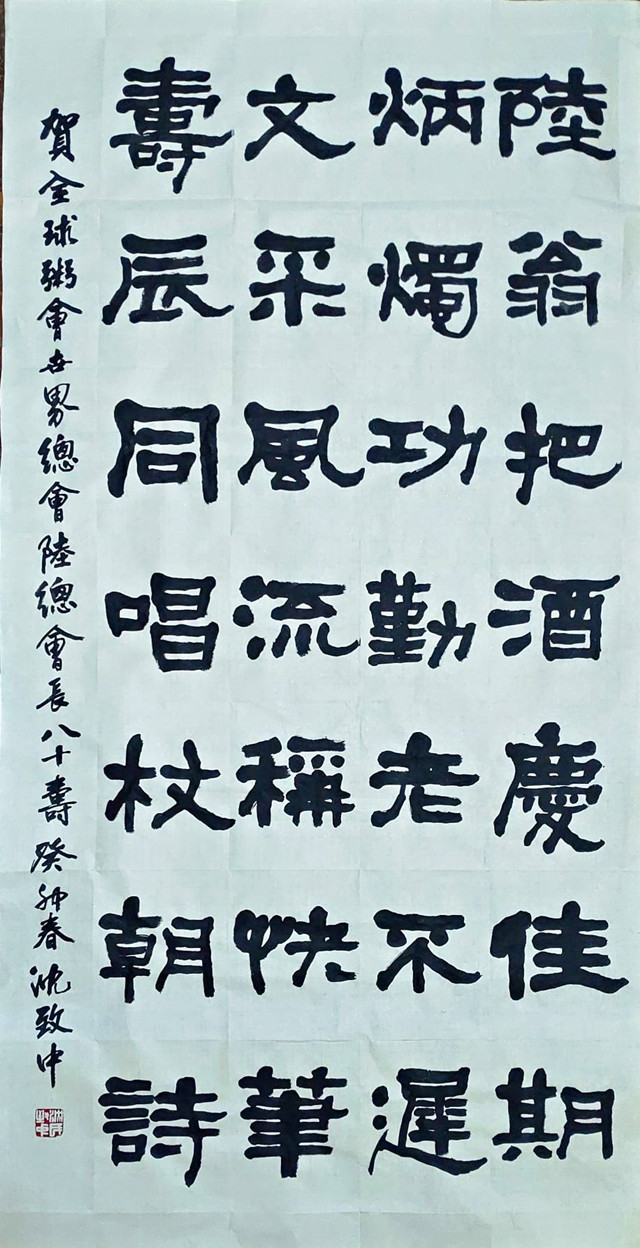 陸翁把酒慶佳期
炳燭功勤老不遲
文采風流稱快筆
壽辰同唱杖朝詩
賀全球粥會世界總會陸總會長八十壽 癸卯春 沈致中